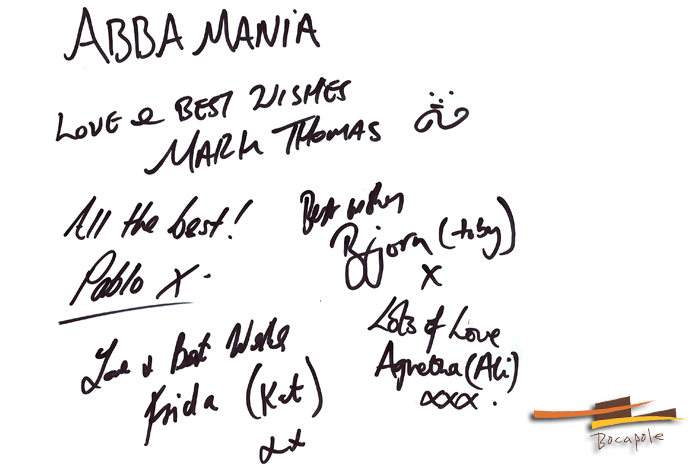 ABBA MANIA
LOVE & BEST WISHES
MARK THOMAS
All the best!
Pablo X.
Best wishes
Bjorn (toby)
X
Love & Best Wishes
Frida (Kat)
xx
Lots of Love
Agnetha (Ali)
xxx.
Bocapole